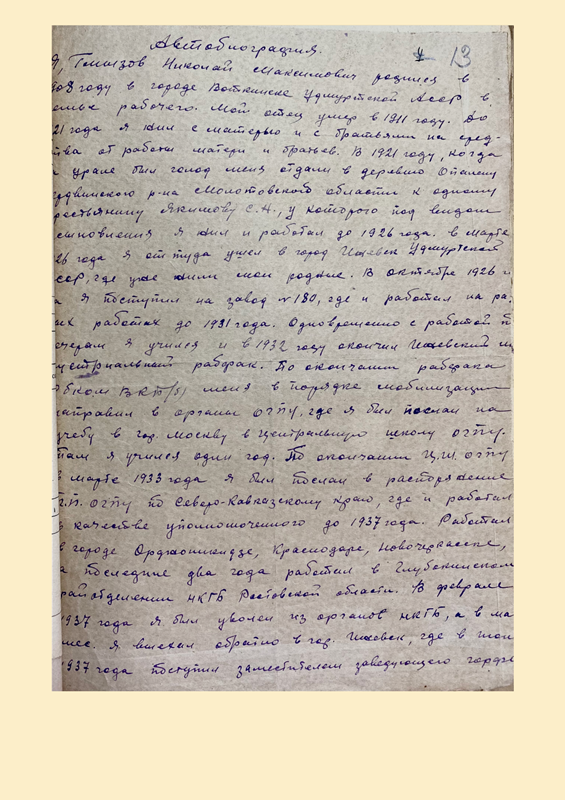 Автобиография.
13
Я, Николай Максимович родился в
908 году в городе Воткинске Удмуртской АССР в
семье рабочего. Мой отец умер в 1911 году. До
21 года я жил с матерью и с братьями на сред-
тва от работы матери и братьев. В 1921 году, когда
а урале был голод меня отдали в деревню
р-на Молотовской области к одному
рестьянину Якимову С.А., у которого под видом
сыновления я жил и работал до 1926 года. в марте
26 года я оттуда ушел в город Ижевск Удмуртской
ССР, где уже жили мои родные. В октябре 1926 г
а я поступил на завод № 180, где и работал на ра.
ых работах до 1931 года. Одновременно с работой п
ечерам я учился и в 1932 году окончил Ижевский ин
устриальный рабфак. По окончании рабфака
бком ВКП/б/ меня в порядке мобилизации
направил в органы ОГПУ, где я был послан на
учебу в гор. Москву в Центральную школу ОГПУ.
там я учился один год. По окончании Ц.Ш. ОГПУ
в марте 1933 года я был послан в распоряжение
П.П. ОГПУ по Северо-Кавказскому краю, где и работал
в качестве уполномоченного до 1937 года. Работал
в городе Орджоникидзе, Краснодаре, Новочеркасске,
а последние два года работал в Глубокинском
райотделении НКГБ Ростовской области. В феврале
1937 года я был уволен из органов НКГБ, а в ма
мес. я выехал обратно в гор. Ижевск, где в
1937 года поступил заместителем заведующего